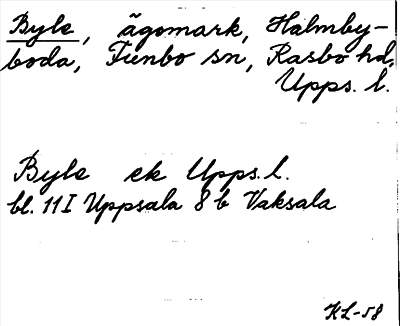 Byle, ägomark, Halmby-
boda, Funbo sn, Rasbo hd,
Upps. l.
Byle ek Upps. l.
bl. 11 I Uppsala 8 b Vaksala
KL-58